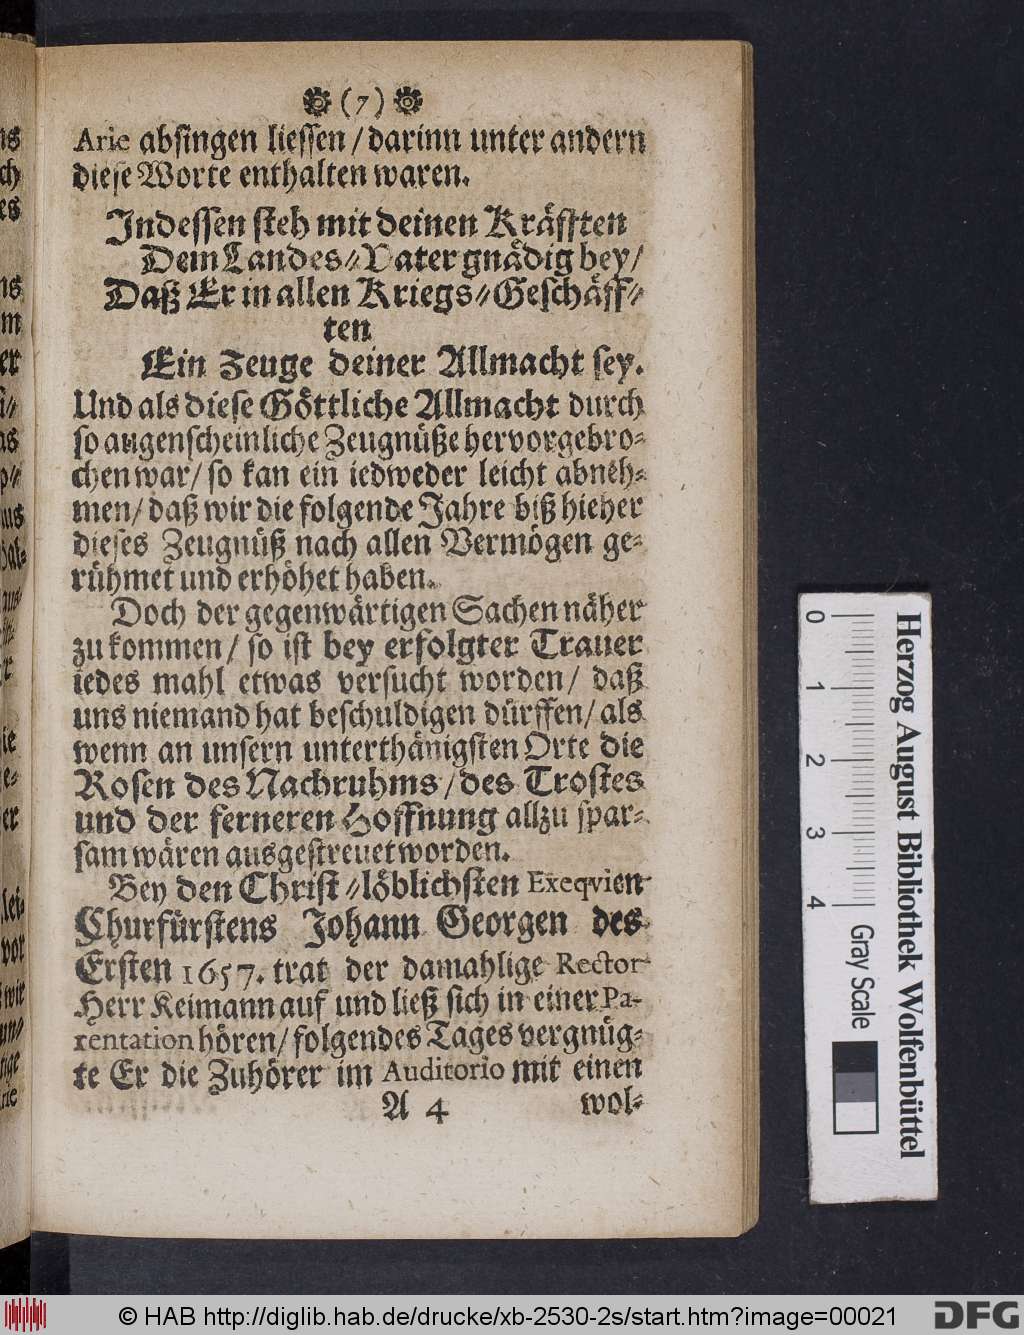 (7)
Arie absingen liessen / darinn unter andern
diese Worte enthalten waren.
Indessen steh mit deinen Kräfften
Dem Landes⸗Vater gnädig bey/
Daß Er in allen Kriegs⸗Geschäff⸗
ten
Ein Zeuge deiner Allmacht sey.
Und als diese Göttliche Allmacht durch
so augenscheinliche Zeugnüße hervorgebro⸗
chen war/ so kan ein iedweder leicht abneh⸗
men/ daß wir die folgende Jahre biß hieher
dieses Zeugnüß nach allen Vermögen ge⸗
rühmet und erhöhet haben.
Doch der gegenwärtigen Sachen näher
zu kommen/ so ist bey erfolgter Trauer
iedes mahl etwas versucht worden/ daß
uns niemand hat beschuldigen dürffen/ als
wenn an unsern unterthänigsten Orte die
Rosen des Nachruhms/des Trostes
und der ferneren Hoffnung allzu spar⸗
sam wären ausgestreuet worden.
Bey den Christ⸗löblichsten Exeqvien
Churfürstens Johann Georgen des
Ersten 1657. trat der damahlige Rector
Herr Keimann auf und ließ sich in einer Pa-
rentation hören/ folgendes Tages vergnüg⸗
te Er die Zuhörer im Auditorio mit einen
A 4 wol⸗
0 1 2 3 4
Herzog August Bibliothek Wolfenbüttel
Gray Scale
© HAB http://diglib.hab.de/drucke/xb-2530-2s/start.htm?image=00021
DFG